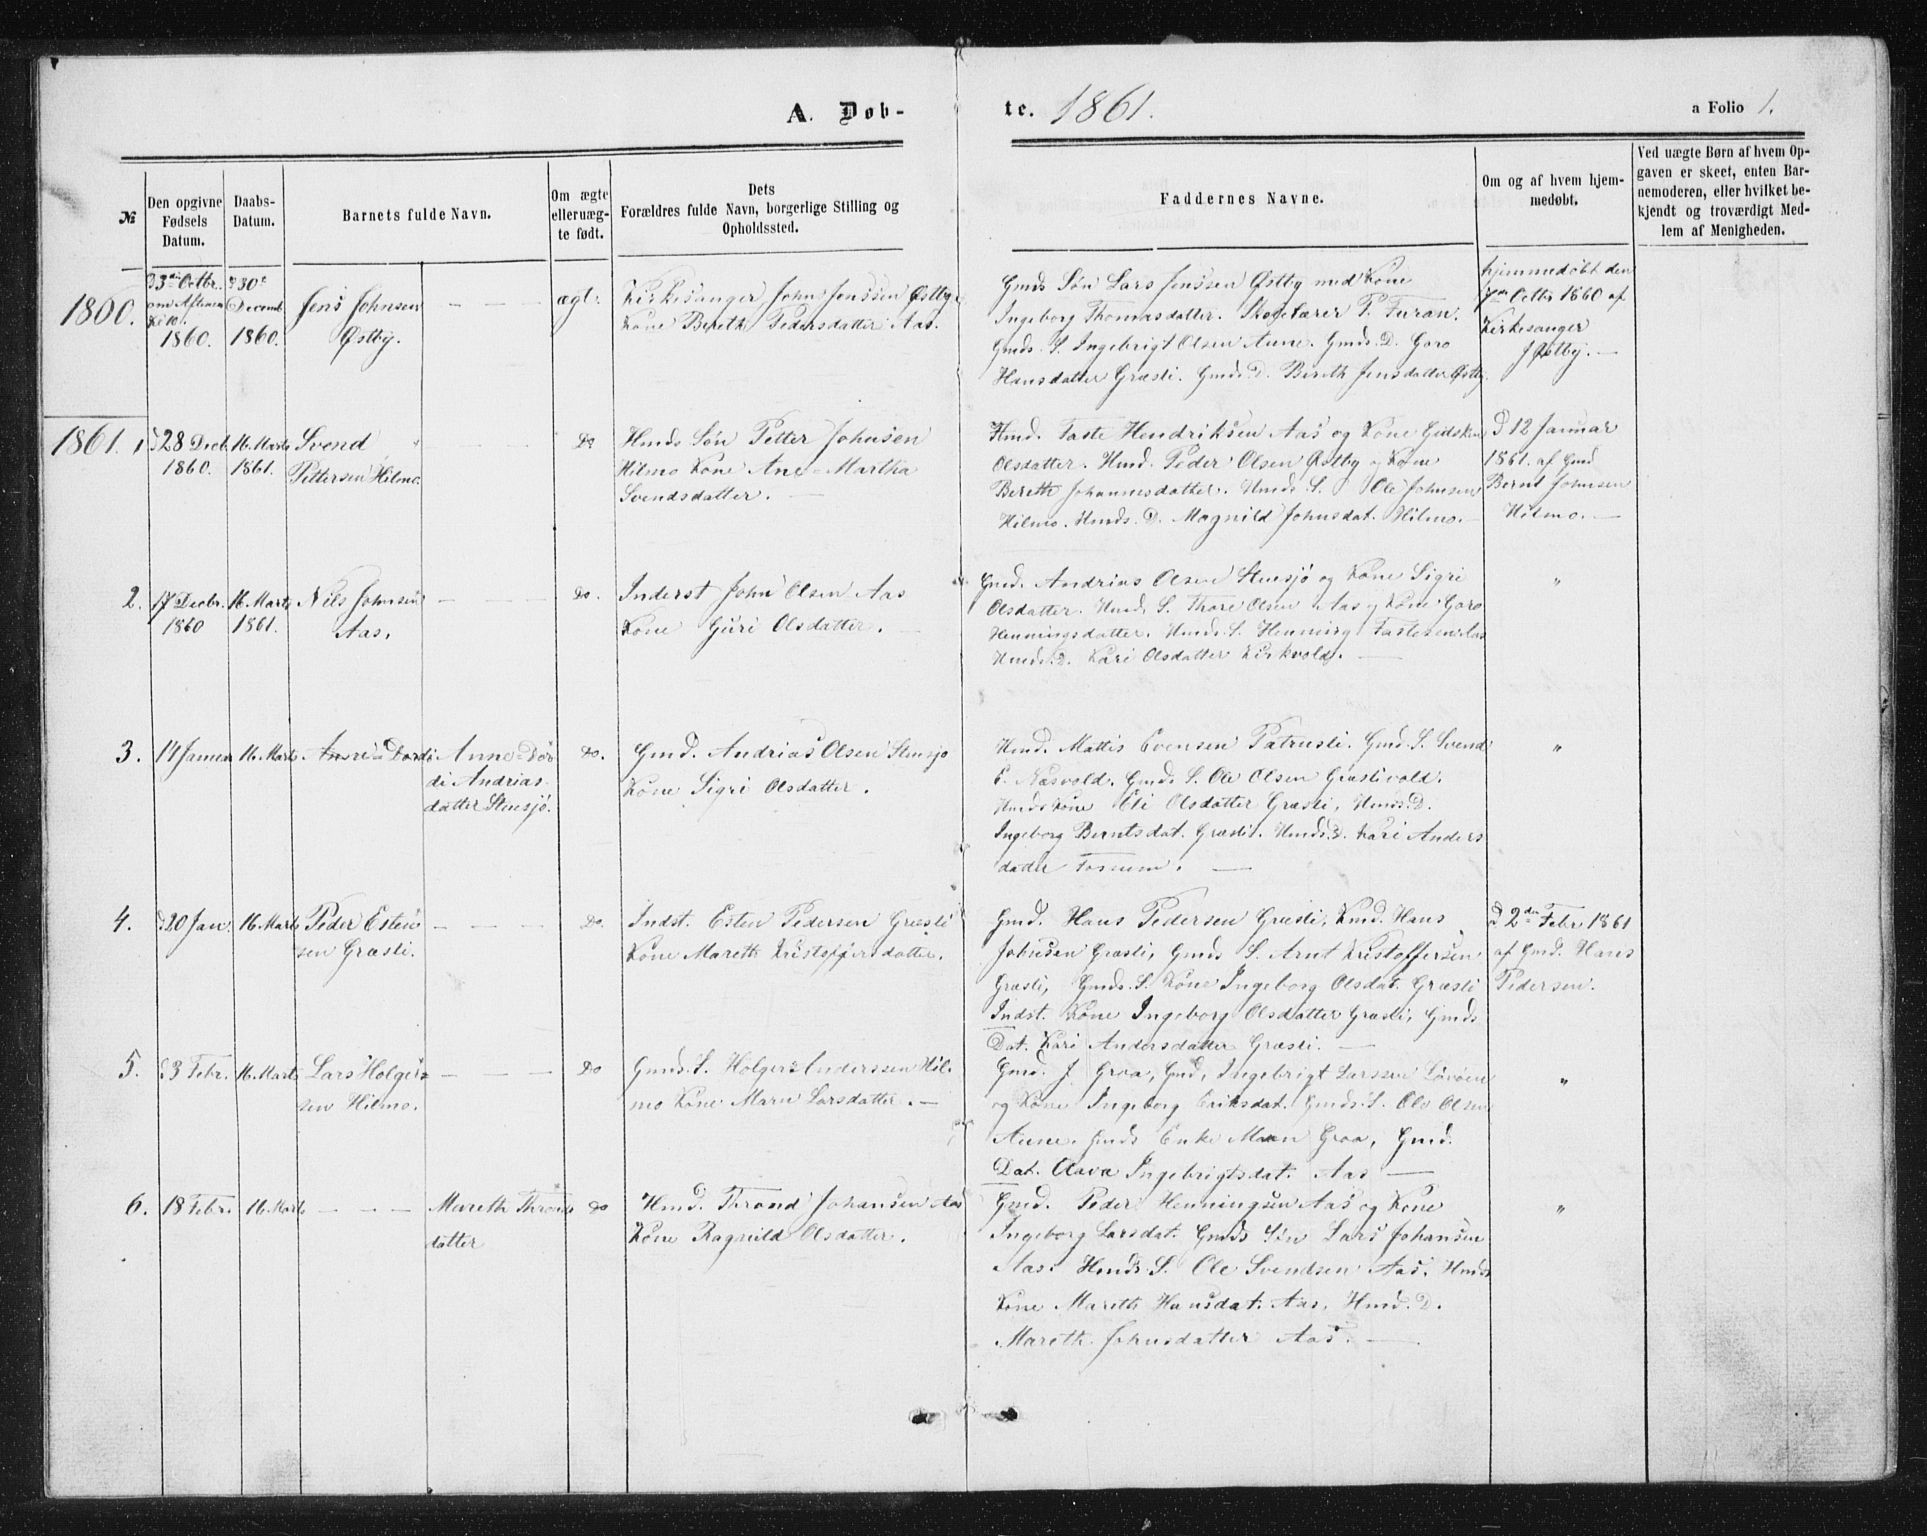 A. Døb-
te. 1861.
a Folio 1.
№
Den opgivne Fødsels Datum.
Daabs-Datum.
Barnets fulde Navn.
Om ægte eller uæg-te født.
Dets
Forældres fulde Navn, borgerlige Stilling og Opholdssted.
Faddernes Navne.
Om og af hvem hjem-medøbt.
Ved uægte Børn af hvem Op-gaven er skeet, enten Bar-nemoderen, eller hvilket be-kjendt og troværdigt Med-lem af Menigheden.
1860.
Octbr.
om Aftenen
Kl 10.
1860.
30
Decemb
1860.
Jens Johnsen
Østby.
ægt.
Kirkesanger John Jenssen Østby
Kone Bereth Pedersdatter Aas.
Gmds Søn Lars Jenssen Østby med Kone
Ingeborg Thomasdatter. P. Furan.
Gmds. S. Ingebrigt Olsen Aune. Gmds. D. Goro
Hansdatter Græsli. Gmds. D. Bereth Jensdatter Østby.
hjemmedøbt den
Octbr 1860 af
Kirkesanger
J Østby. —
1861.
1
28 Decb.
1860.
16 Marts
1861.
Svend
Pettersen Hilmo.
Do
Hmds Søn Petter Johnsen
Hilmo Kone Ane-Martha
Svendsdatter. —
Hmd. Faste Hendriksen Aas og Kone Gidsken
Olsdatter. Hmd. Peder Olsen Østby og Kone
Bereth Johannesdatter. Hmds. S. Ole Johnsen
Hilmo. Hmds. D. Magnild Johnsdat. Hilmo. —
D 12 Januar
1861. af Gmd
Bernt Johnsen
Hilmo. —
2.
17 Decbr.
1860
16 Marts
1861.
Nils Johnsen
Aas.
Do.
Inderst John Olsen Aas
Kone Guri Olsdatter. —
Gmd. Andrias Olsen Stensjø og Kone Sigri
Olsdatter. Hmds. S. Thore Olsen Aas og Kone Goro
Henningsdatter. Hmds. S. Henning Fastesen Aas
Hmds. D. Kari Olsdatter Kirkvold. —
"
3.
14 Januar
16 Marts
Anne-Dordi
Anne-Dor-
di Andrias-
datter Stensjø.
Do.
Gmd. Andrias Olsen Stensjø
Kone Sigri Olsdatter.
Hmd. Mattis Evensen Patrusli. Gmd. S. Svend
E. Næsvold. Gmds. S. Ole Olsen Græslivold.
Hmds Kone Eli Olsdatter Græsli, Hmds. D.
Ingeborg Berntsdat. Græsli. Hmds. D. Kari Anders
datter Fossum. —
"
4.
20 Jan.
16 Marts
Peder Esten-
sen Græsli.
Do.
Indst. Esten Pedersen Græsli
Kone Mareth Kristoffersdatter.
Gmd. Hans Pedersen Græsli, Hans
Johnsen Græsli, Gmds S. Arnt Kristoffersen
Græsli, Gmds. S. Kone Ingeborg Olsdat. Græsli
Indst. Kone Ingeborg Olsdatter Græsli, Gmds
Dat. Kari Andersdatter Græsli. —
D 2den Febr 1861
af Gmd. Hans
Pedersen.
5.
3 Febr.
16 Marts
Lars Holger-
sen Hilmo.
Do
Gmds. S. Holger Anderssen Hil-
mo Kone Maren Larsdatter. —
Gmd. J. Groa, Gmd, Ingebrigt Larssen Løvøen
og Kone Ingeborg Eriksdat. Gmds. S. Ole Olsen
Aune. Gmds Enke Maren Groa, Gmd.
Dat. Ingebrigtsdat. Aas —
"
6.
18 Febr.
16 Marts
Mareth Thronds
datter
Do
Hmd. Thrond Johansen Aas
Kone Ragnild Olsdatter.
Gmd. Peder Henningsen Aas og Kone
Ingeborg Larsdat. Gmds Søn Lars Johansen
Aas. Hmds. S. Ole Svendsen Aas, Hmds
Kone Mareth Hansdat. Aas, Hmd. D.
Mareth Johnsdatter Aas. —
"